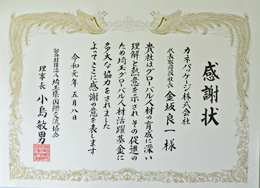 感謝状
カネパッケージ株式会社
代表取締役社長 金坂良一様
貴社はグローバル人材の育成に深い
理解と熱意を示され その促進の
ため埼玉グローバル人材活躍基金に
多大な協力をされました
よってここに感謝の意を表します
令和元年五月八日
公益財団法人埼玉県国際交流協会
理事長 小島敏男